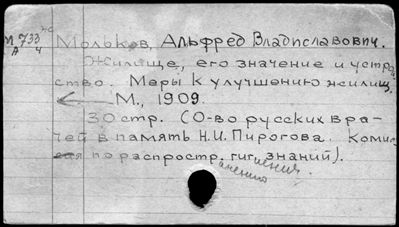 М 733 Мольков, Альфред Владиславович.
А 4
Жилище, его значение и устрой
ство. Меры к улучшению жилищ.
М., 1909.
30 стр. (О-во русских вра-
чей в память Н.И. Пирогова. Комис
сия по распростр. гигиения.
анению знаний).